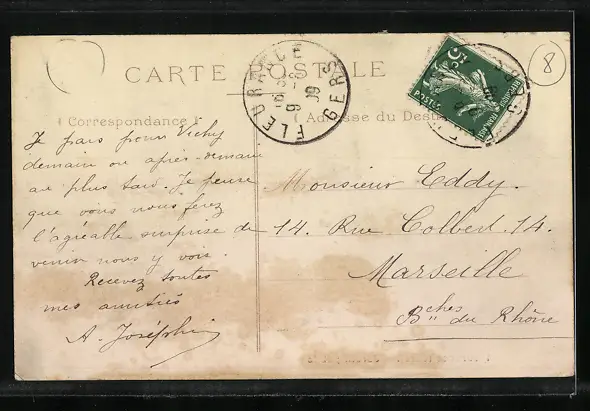 CARTE POSTALE
Correspondance
Adresse du Dest
FLEURANCE
GERS
09
5c
POSTES
8
Je pars pour Vichy
demain ou après-demain
au plus tard. Je pense
que vous nous ferez
l'agréable surprise de
venir nous y voir.
Recevez toutes
mes amitiés
A. Joséphine
Monsieur Eddy.
14. Rue Colbert. 14.
Marseille
Bches du Rhône